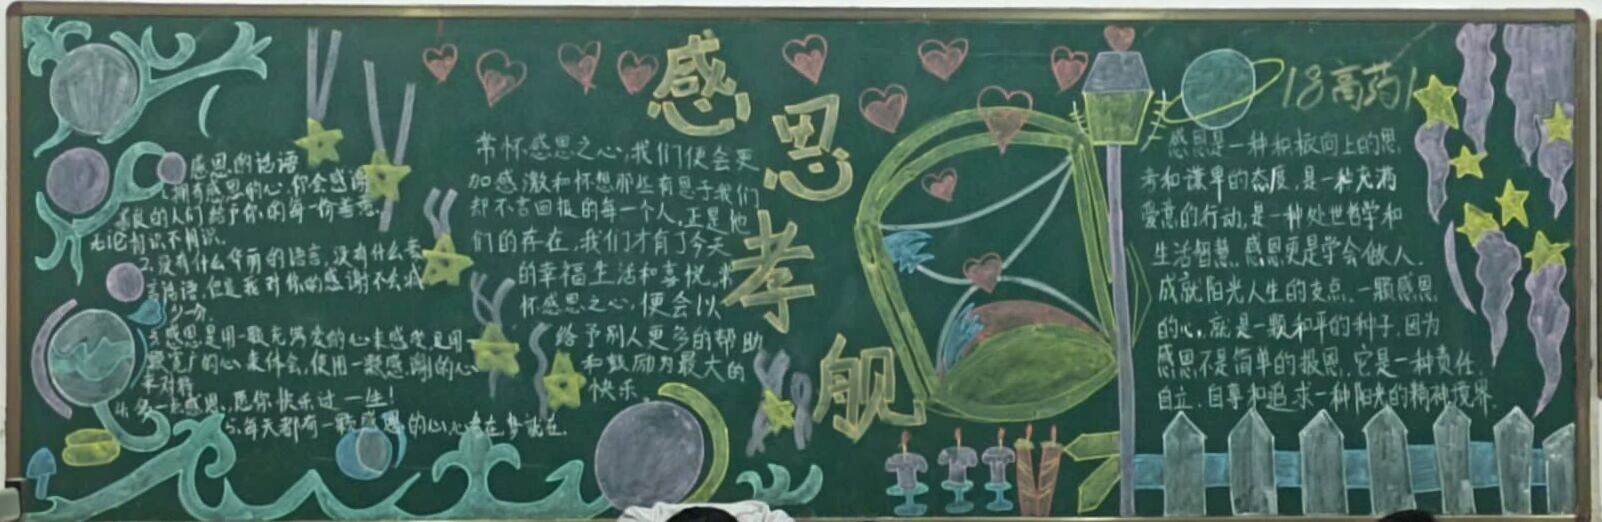 感恩的话语
1.拥有感恩的心,你会感谢
善良的人们给予你的每一份善意,
无论相识不相识。
2.没有什么华丽的语言,没有什么豪
言话语,但是我对你的感谢不会减
少一分。
3.感恩是用一颗充满爱的心来感受,是用
最宽广的心来体会,使用一颗感谢的心
来对待
一点感恩,愿你快乐过一生!
5.每天都有一颗感恩的心,心在,梦就在.
常怀感恩之心,我们便会更
加感激和怀想那些有恩于我们
却不言回报的每一个人,正是他
们的存在,我们才有了今天
的幸福生活和喜悦,常
怀感恩之心,便会以
给予别人更多的帮助
和鼓励为最大的
快乐。
感
恩
孝
亲
18高药1
感恩是一种积极向上的思
考和谦卑的态度,是一种充满
爱意的行动,是一种处世哲学和
生活智慧,感恩更是学会做人,
成就阳光人生的支点,一颗感恩
的心,就是一颗和平的种子,因为
感恩不是简单的报恩,它是一种责任、
自立、自尊和追求一种阳光的精神境界.